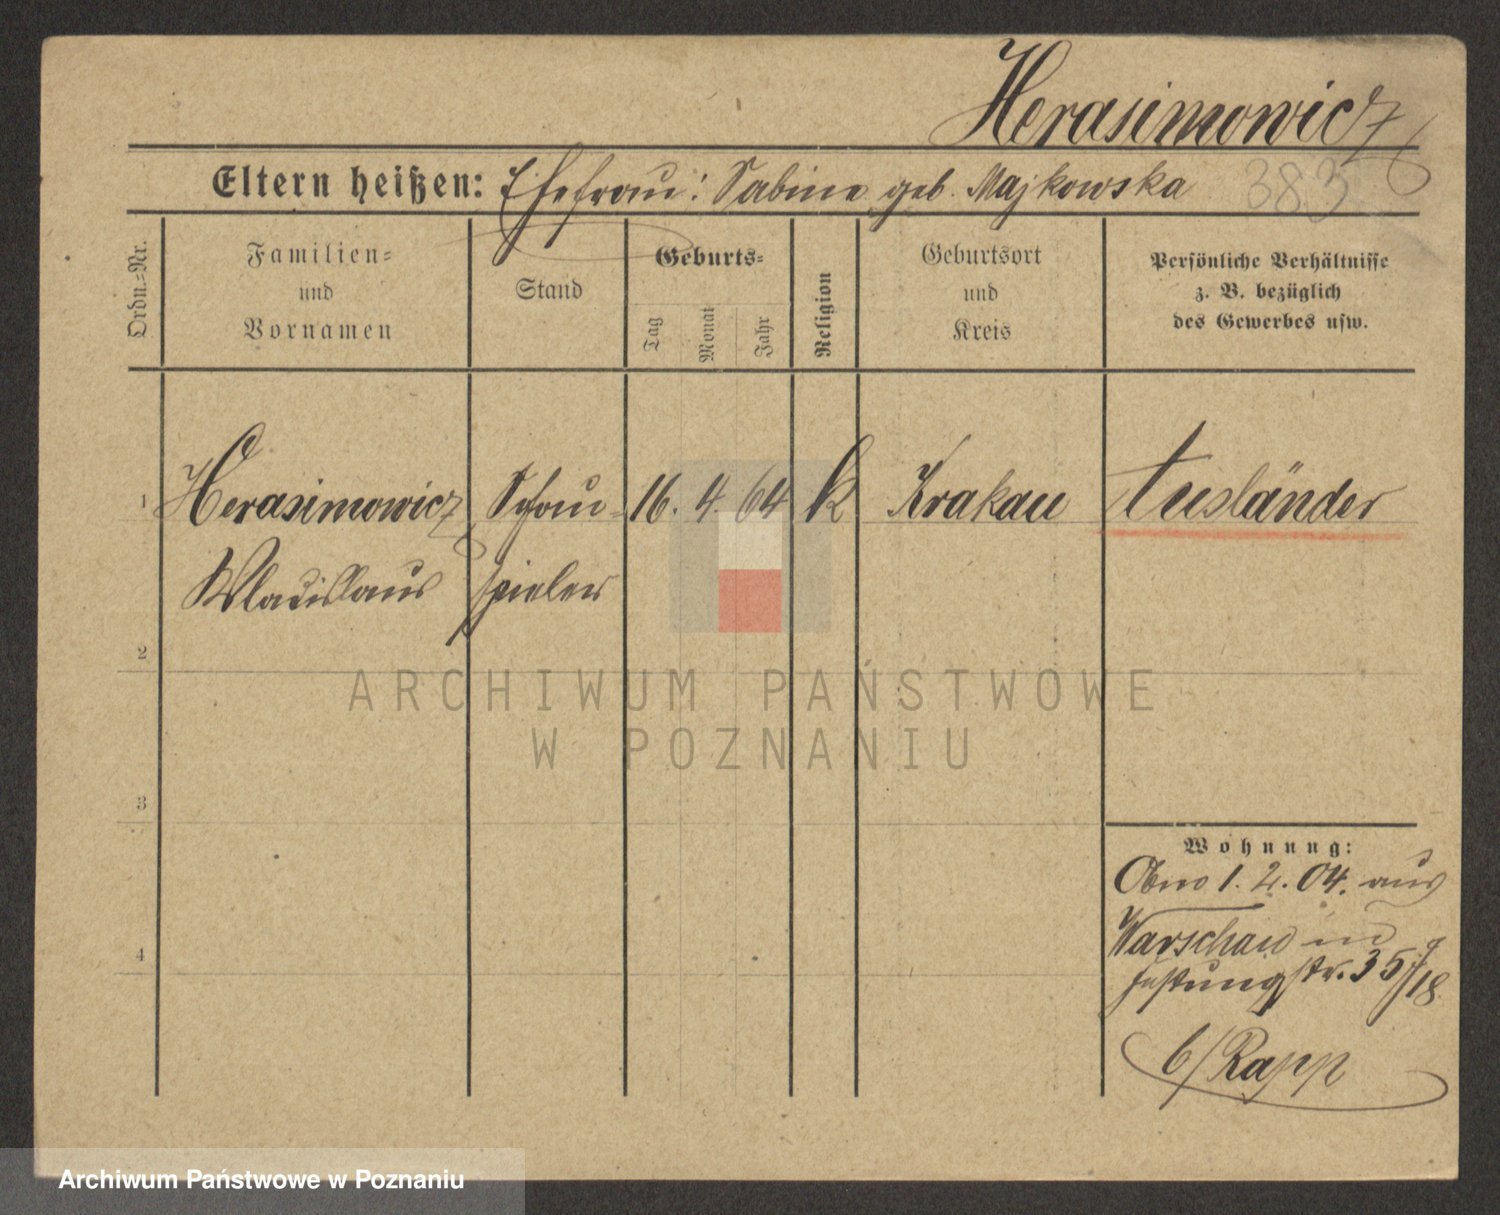 Herasimowicz
Eltern heißen: Ehefrau: Sabine geb. Majkowska 383
Ordn.-Nr.
Familien-
und
Vornamen
Stand
Geburts-
Tag
Monat
Jahr
Religion
Geburtsort
und
Kreis
Persönliche Verhältnisse
z. B. bezüglich
des Gewerbes usw.
1 Herasimowicz Schau- 16. 4. 64 k Krakau Ausländer
Wladislaus spieler
2
ARCHIWUM PAŃSTWOWE
W POZNANIU
3
Wohnung:
1. 2. 04. aus
Warschau in
Festungstr. 35/18
b/Rapp
4
Archiwum Państwowe w Poznaniu